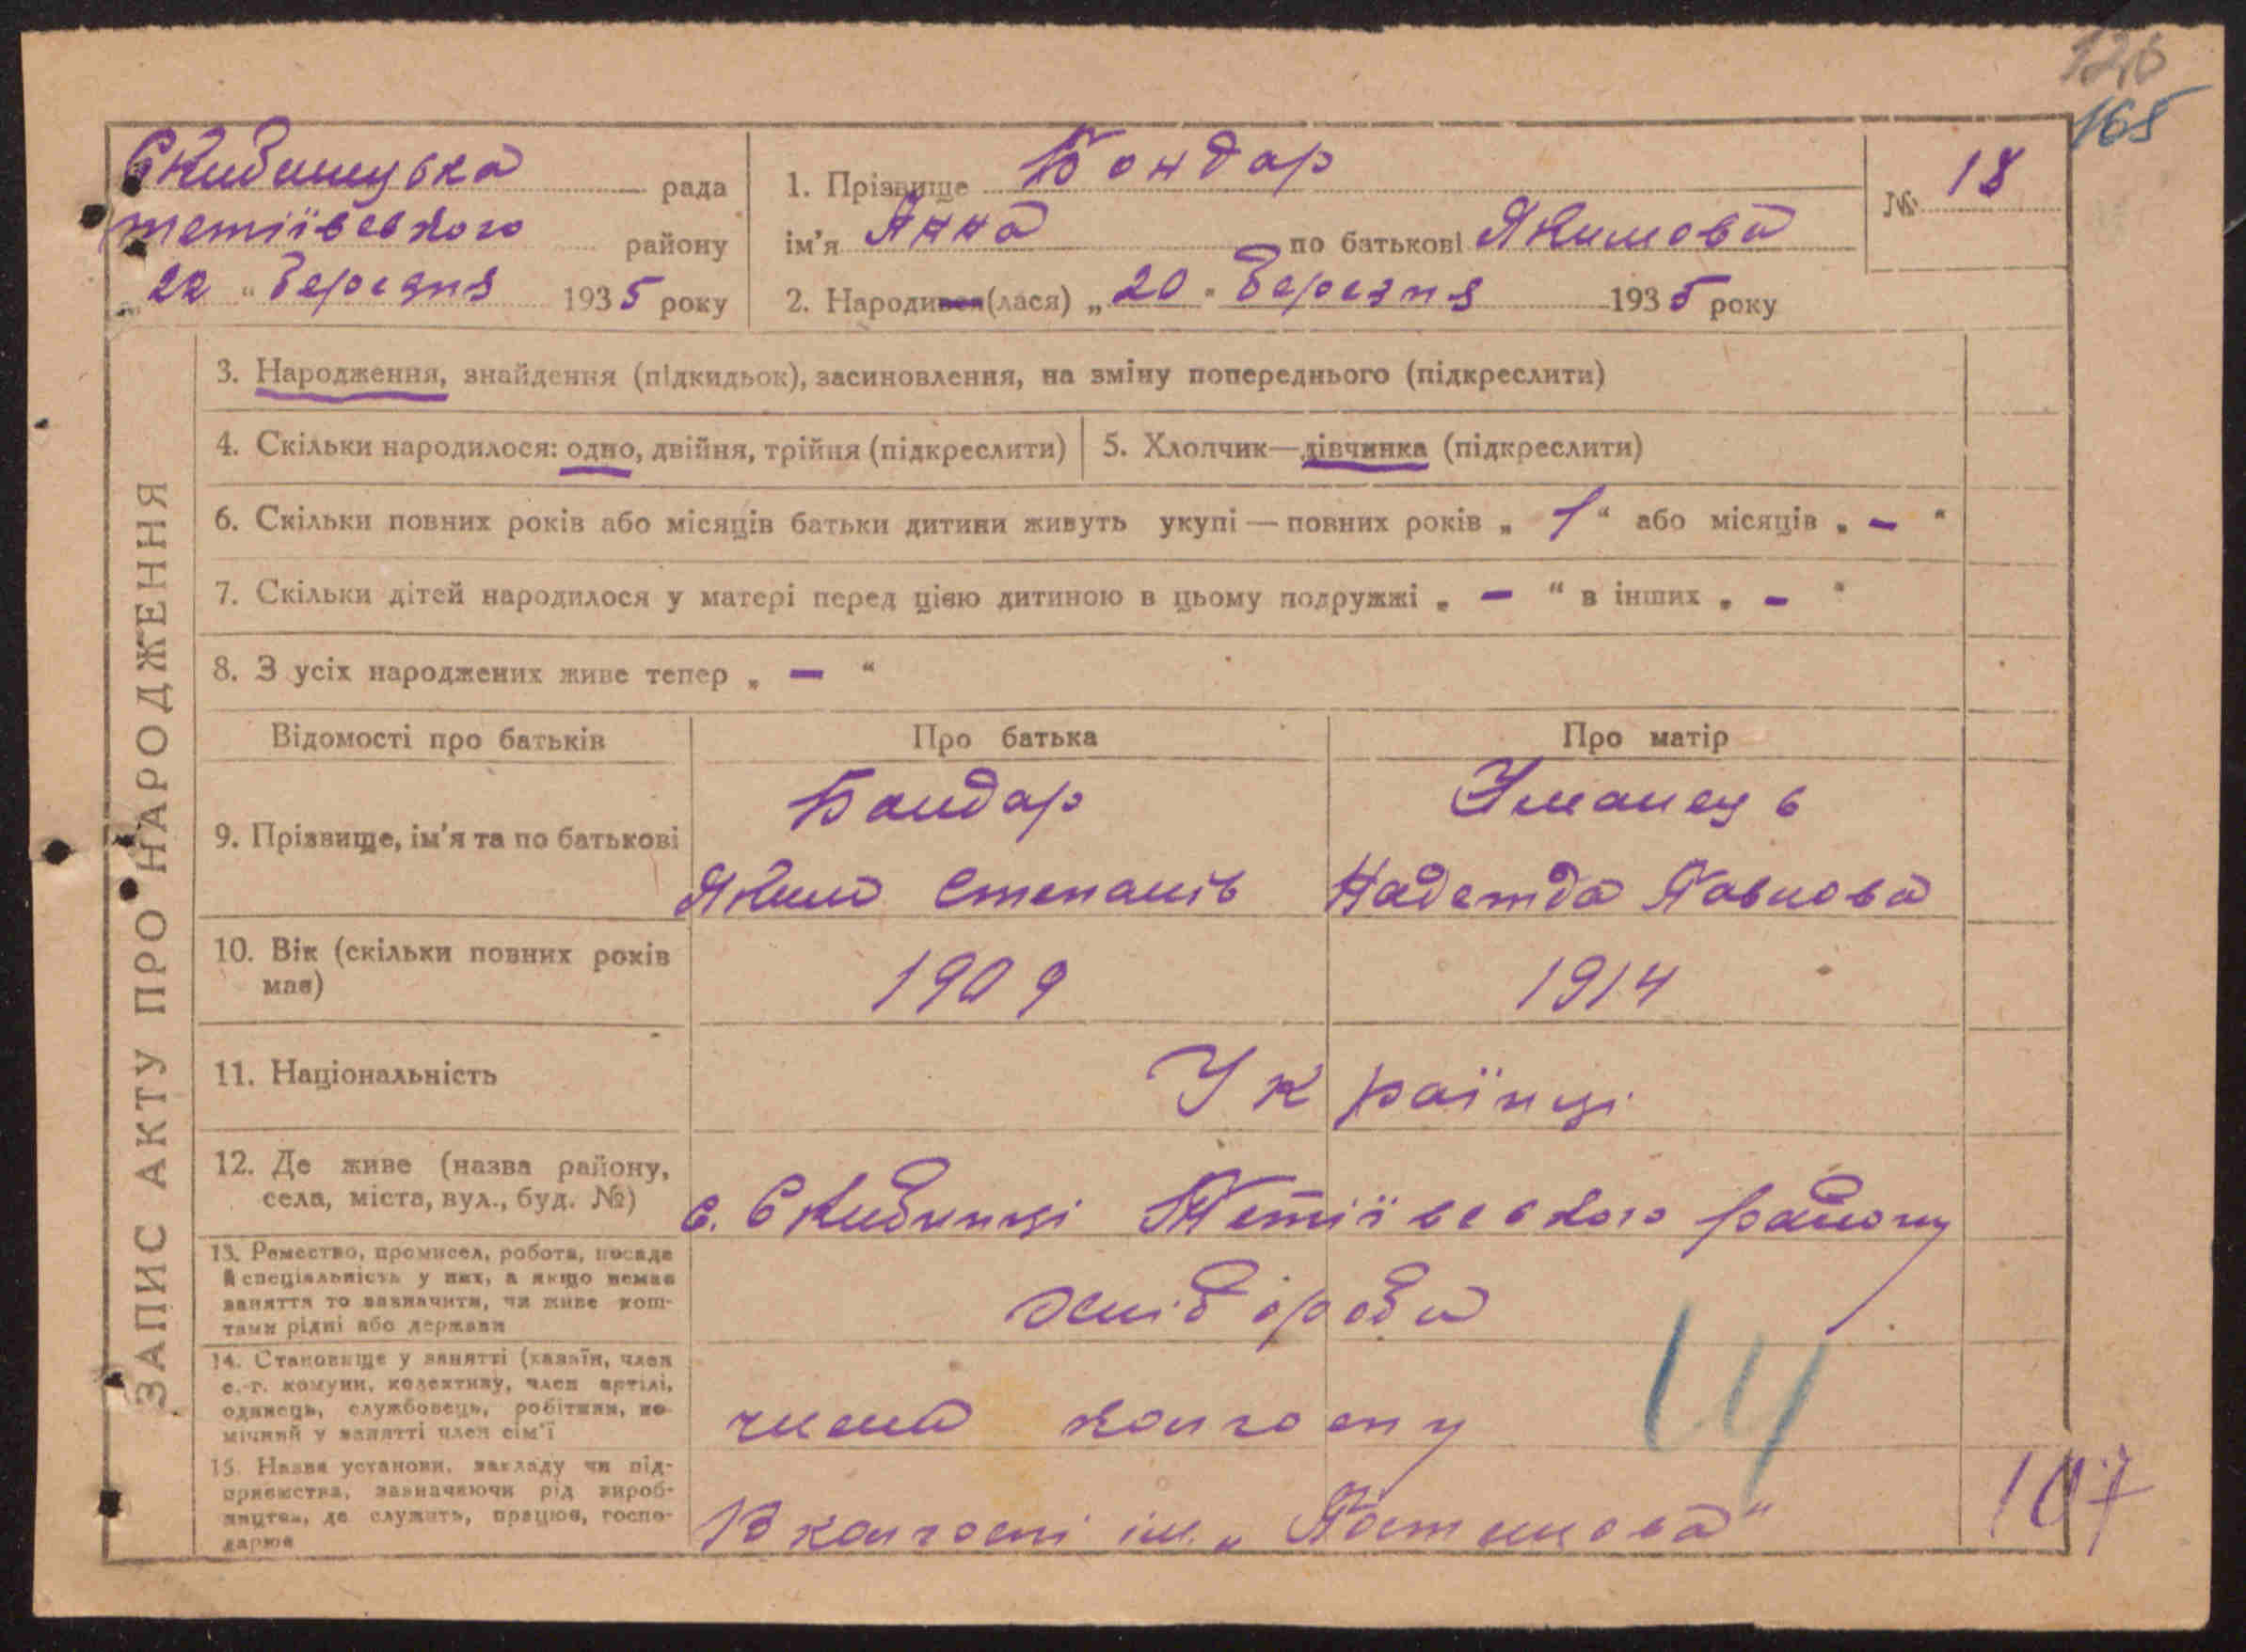 126
165
Скибинецька рада
тетіївського району
„22“ березня 1935 року
1. Прізвище Бондар
ім'я Анна по батькові Якимова
2. Народився(лася) „20“ березня 1935 року
№ 18
ЗАПИС АКТУ ПРО НАРОДЖЕННЯ
3. Народження, знайдення (підкидьок), засиновлення, на зміну попереднього (підкреслити)
4. Скільки народилося: одно, двійня, трійня (підкреслити)
5. Хлопчик—дівчинка (підкреслити)
6. Скільки повних років або місяців батьки дитини живуть укупі — повних років „1“ або місяців „–“
7. Скільки дітей народилося у матері перед цією дитиною в цьому подружжі „–“ в інших „–“
8. З усіх народжених живе тепер „–“
Відомості про батьків Про батька Про матір
9. Прізвище, ім'я та по батькові
Бондар
Яким Степанів
Уманець
Надежда Павлова
10. Вік (скільки повних років
має)
1909 1914
11. Національність
Українці
12. Де живе (назва району,
села, міста, вул., буд. №)
с. Скибинці Тетіївського району
13. Ремество, промисел, робота, посада
й спеціяльність у них, а якщо немає
заняття то зазначити, чи живе кош-
тами рідні або держави
хлібороби
14. Становище у занятті (хазяїн, член
с.-г. комуни, колективу, член артілі,
одинець, службовець, робітник, по-
мічний у занятті член сім'ї
члени колгоспу
15. Назва установи, закладу чи під-
приємства, зазначаючи рід вироб-
ництва, де служить, працює, госпо-
дарює
В колгоспі ім. „Постишева“
107